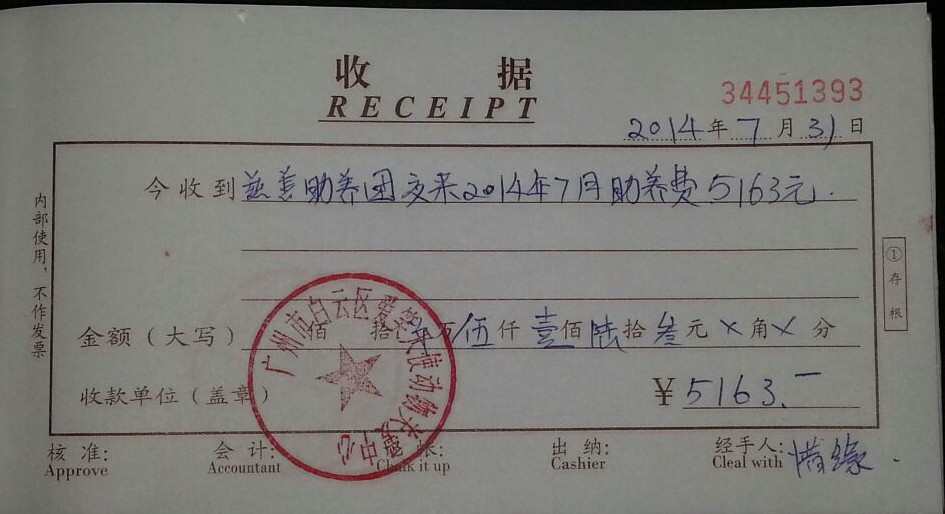 收 据
RECEIPT
34451393
2014年7月31日
今收到慈善助养团交来2014年7月助养费5163元.
金额（大写） 佰 拾 万伍仟壹佰陆拾叁元×角×分
收款单位（盖章）
¥5163.一
广州市白云区爱笑天使动物关爱中心
内部使用，不作发票
①存根
核准: 会计: 帐: 出纳: 经手人:惜缘
Approve Accountant Chalk it up Cashier Cleal with